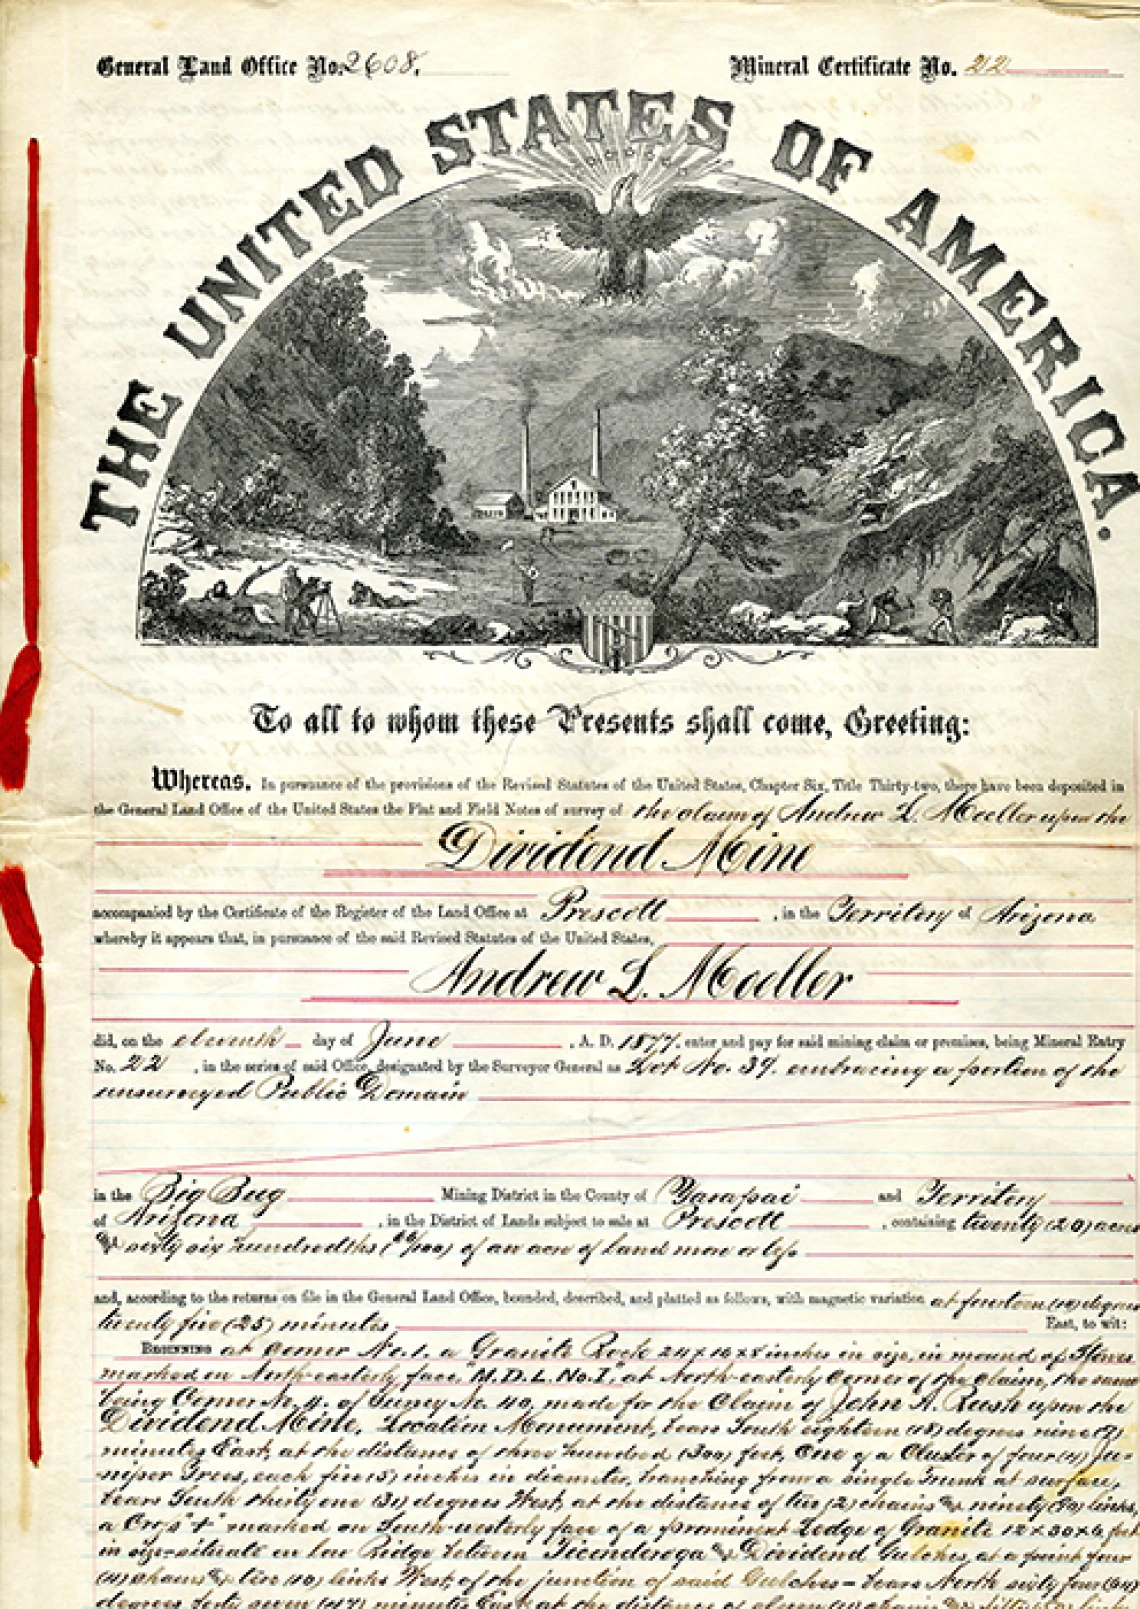 General Land Office No. 2608.
Mineral Certificate No. 22
THE UNITED STATES OF AMERICA.
To all to whom these Presents shall come, Greeting:
Whereas. In pursuance of the provisions of the Revised Statutes of the United States, Chapter Six, Title Thirty-two, there have been deposited in
the General Land Office of the United States the Plat and Field Notes of survey of the claim of Andrew L. Moeller upon the
Dividend Mine
accompanied by the Certificate of the Register of the Land Office at Prescott, in the Territory of Arizona
whereby it appears that, in pursuance of the said Revised Statutes of the United States,
Andrew L. Moeller
did, on the eleventh day of June, A. D. 1877. enter and pay for said mining claim or premises, being Mineral Entry
No. 22, in the series of said Office, designated by the Surveyor General as Lot No. 39. embracing a portion of the
unsurveyed Public Domain
in the Big Bug Mining District in the County of Yavapai and Territory
of Arizona, in the District of Lands subject to sale at Prescott, containing twenty (20) acres
& sixty six hundredths (66/100) of an acre of land more or less
and, according to the returns on file in the General Land Office, bounded, described, and platted as follows, with magnetic variation at fourteen (14) degrees
twenty five (25) minutes East, to wit:
BEGINNING at Corner No. 1. a Granite Rock 24 x 16 x 8 inches in size, in mound of Stones
marked on North-easterly face, "M.D.L. No. 1," at North-easterly Corner of the Claim, the same
being Corner No. 4. of Survey No. 40, made for the Claim of John A. Rush upon the
Dividend Mine. Location Monument, bears South eighteen (18) degrees nine (9)
minutes East, at the distance of three hundred (300) feet, One of a Cluster of four (4) Ju-
niper Trees, each five (5) inches in diameter, branching from a single trunk at surface,
bears South thirty one (31) degrees West, at the distance of two (2) chains & ninety (90) links,
a Cross "+" marked on South-westerly face of a prominent Ledge of Granite 12 x 30 x 6 feet
in size situate on low Ridge between Ticonderoga & Dividend Gulches, at a point four
(4) chains & ten (10) links West, of the junction of said Gulches - bears North sixty four (64)
degrees forty seven (47) minutes East at the distance of eleven (11) chains &